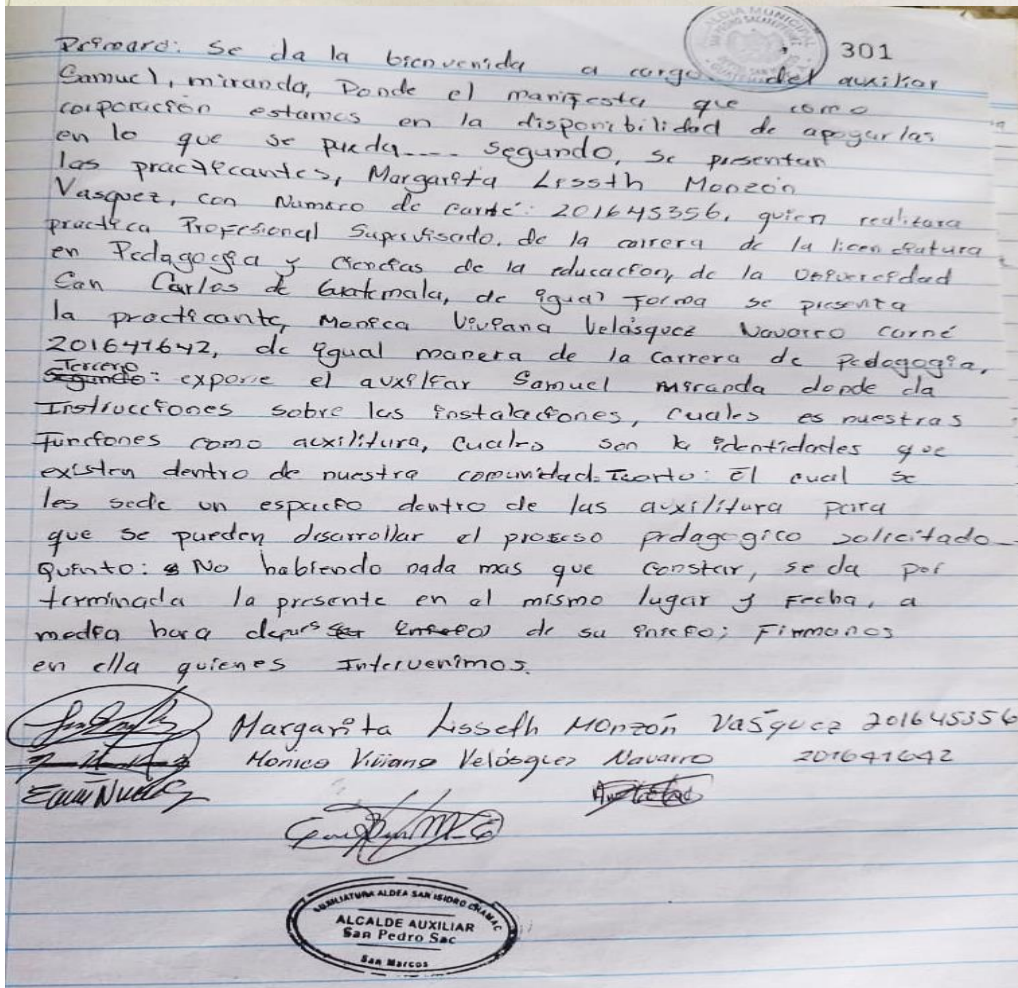 ALCALDIA MUNICIPAL
301
Primaro: Se da la bienvenida a cargo del auxiliar
Samuel, miranda, Donde el manifesta que como
corporación estamos en la disponibilidad de apoyar las
en lo que se pueda---- segundo, se presentan
las practicantes, Margarita Lisseth Monzón
Vasquez, con Numero de carné: 201645356, quien realizara
practica Profesional Supervisado, de la carrera de la licenciatura
en Pedagogía y ciencias de la educacion, de la Universidad
San Carlos de Guatemala, de igual Forma se presenta
la practicante, Monica Viviana Velásquez Navarro carné
201641642, de igual manera de la carrera de Pedagogia,
Tercero
Segundo: expone el auxiliar Samuel miranda donde da
Instrucciones sobre las instalaciones, cuales es nuestras
Funciones como auxilitura, cuales son la identidades que
existen dentro de nuestra comunidad. El cual se
les sede un espacio dentro de las auxilitura para
que se pueden desarrollar el proseso pedagogico solicitado
Quinto: No habiendo nada mas que constar, se da por
terminada la presente en el mismo lugar y Fecha, a
media hora de su inicio; Firmamos
en ella quienes Intervenimos.
Margarita Lisseth Monzón Vasquez 201645356
Monica Viviana Velásquez Navarro 201641642
AUXILIATURA ALDEA SAN ISIDRO CHAMAC
ALCALDE AUXILIAR
San Pedro Sac
San Marcos